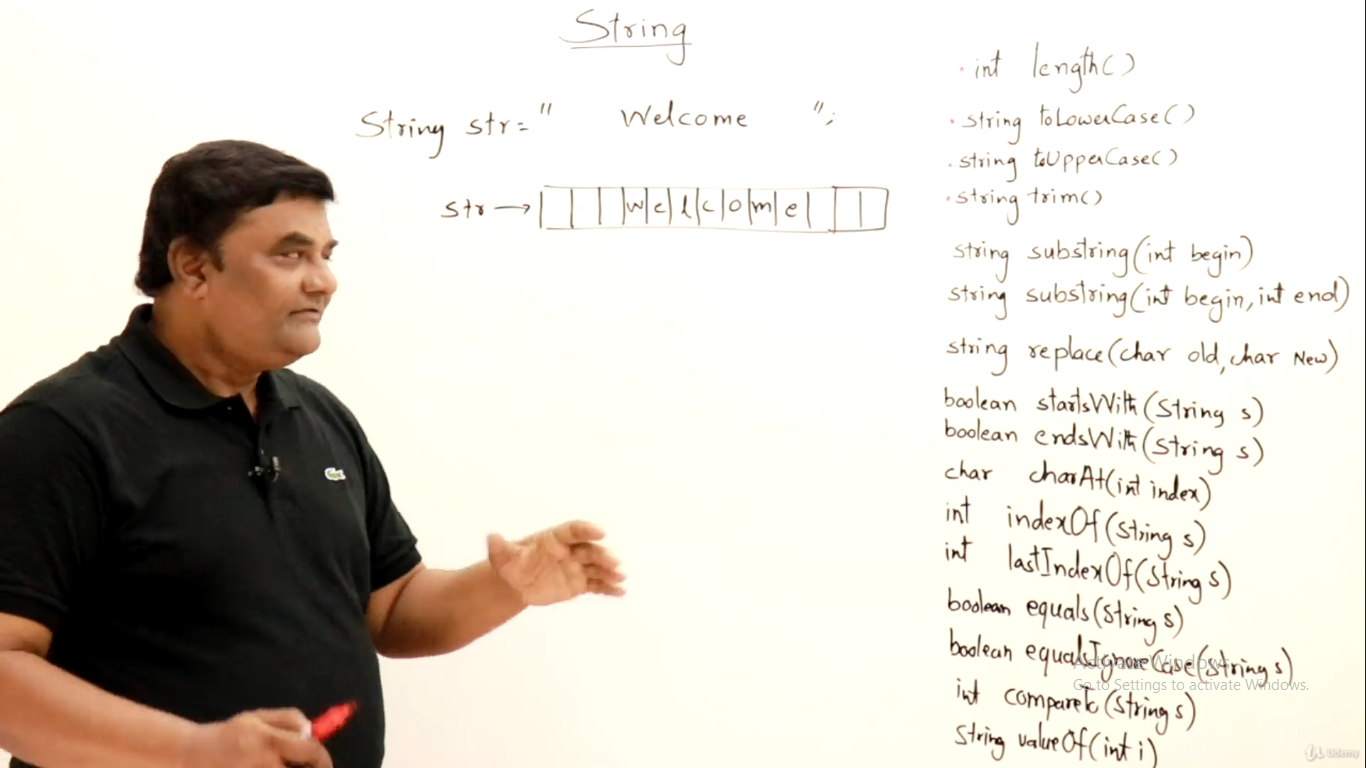 String
String str= " Welcome ";
str → | | | |w|e|l|c|o|m|e| | | |
. int length()
. string toLowerCase()
. string toUpperCase()
. string trim()
string substring(int begin)
string substring(int begin, int end)
string replace(char old, char New)
boolean startsWith(String s)
boolean endsWith(String s)
char charAt(int index)
int indexOf(String s)
int lastIndexOf(String s)
boolean equals(String s)
boolean equalsIgnoreCase(String s)
int compareTo(String s)
String valueOf(int i)
Activate Windows
Go to Settings to activate Windows.
Udemy